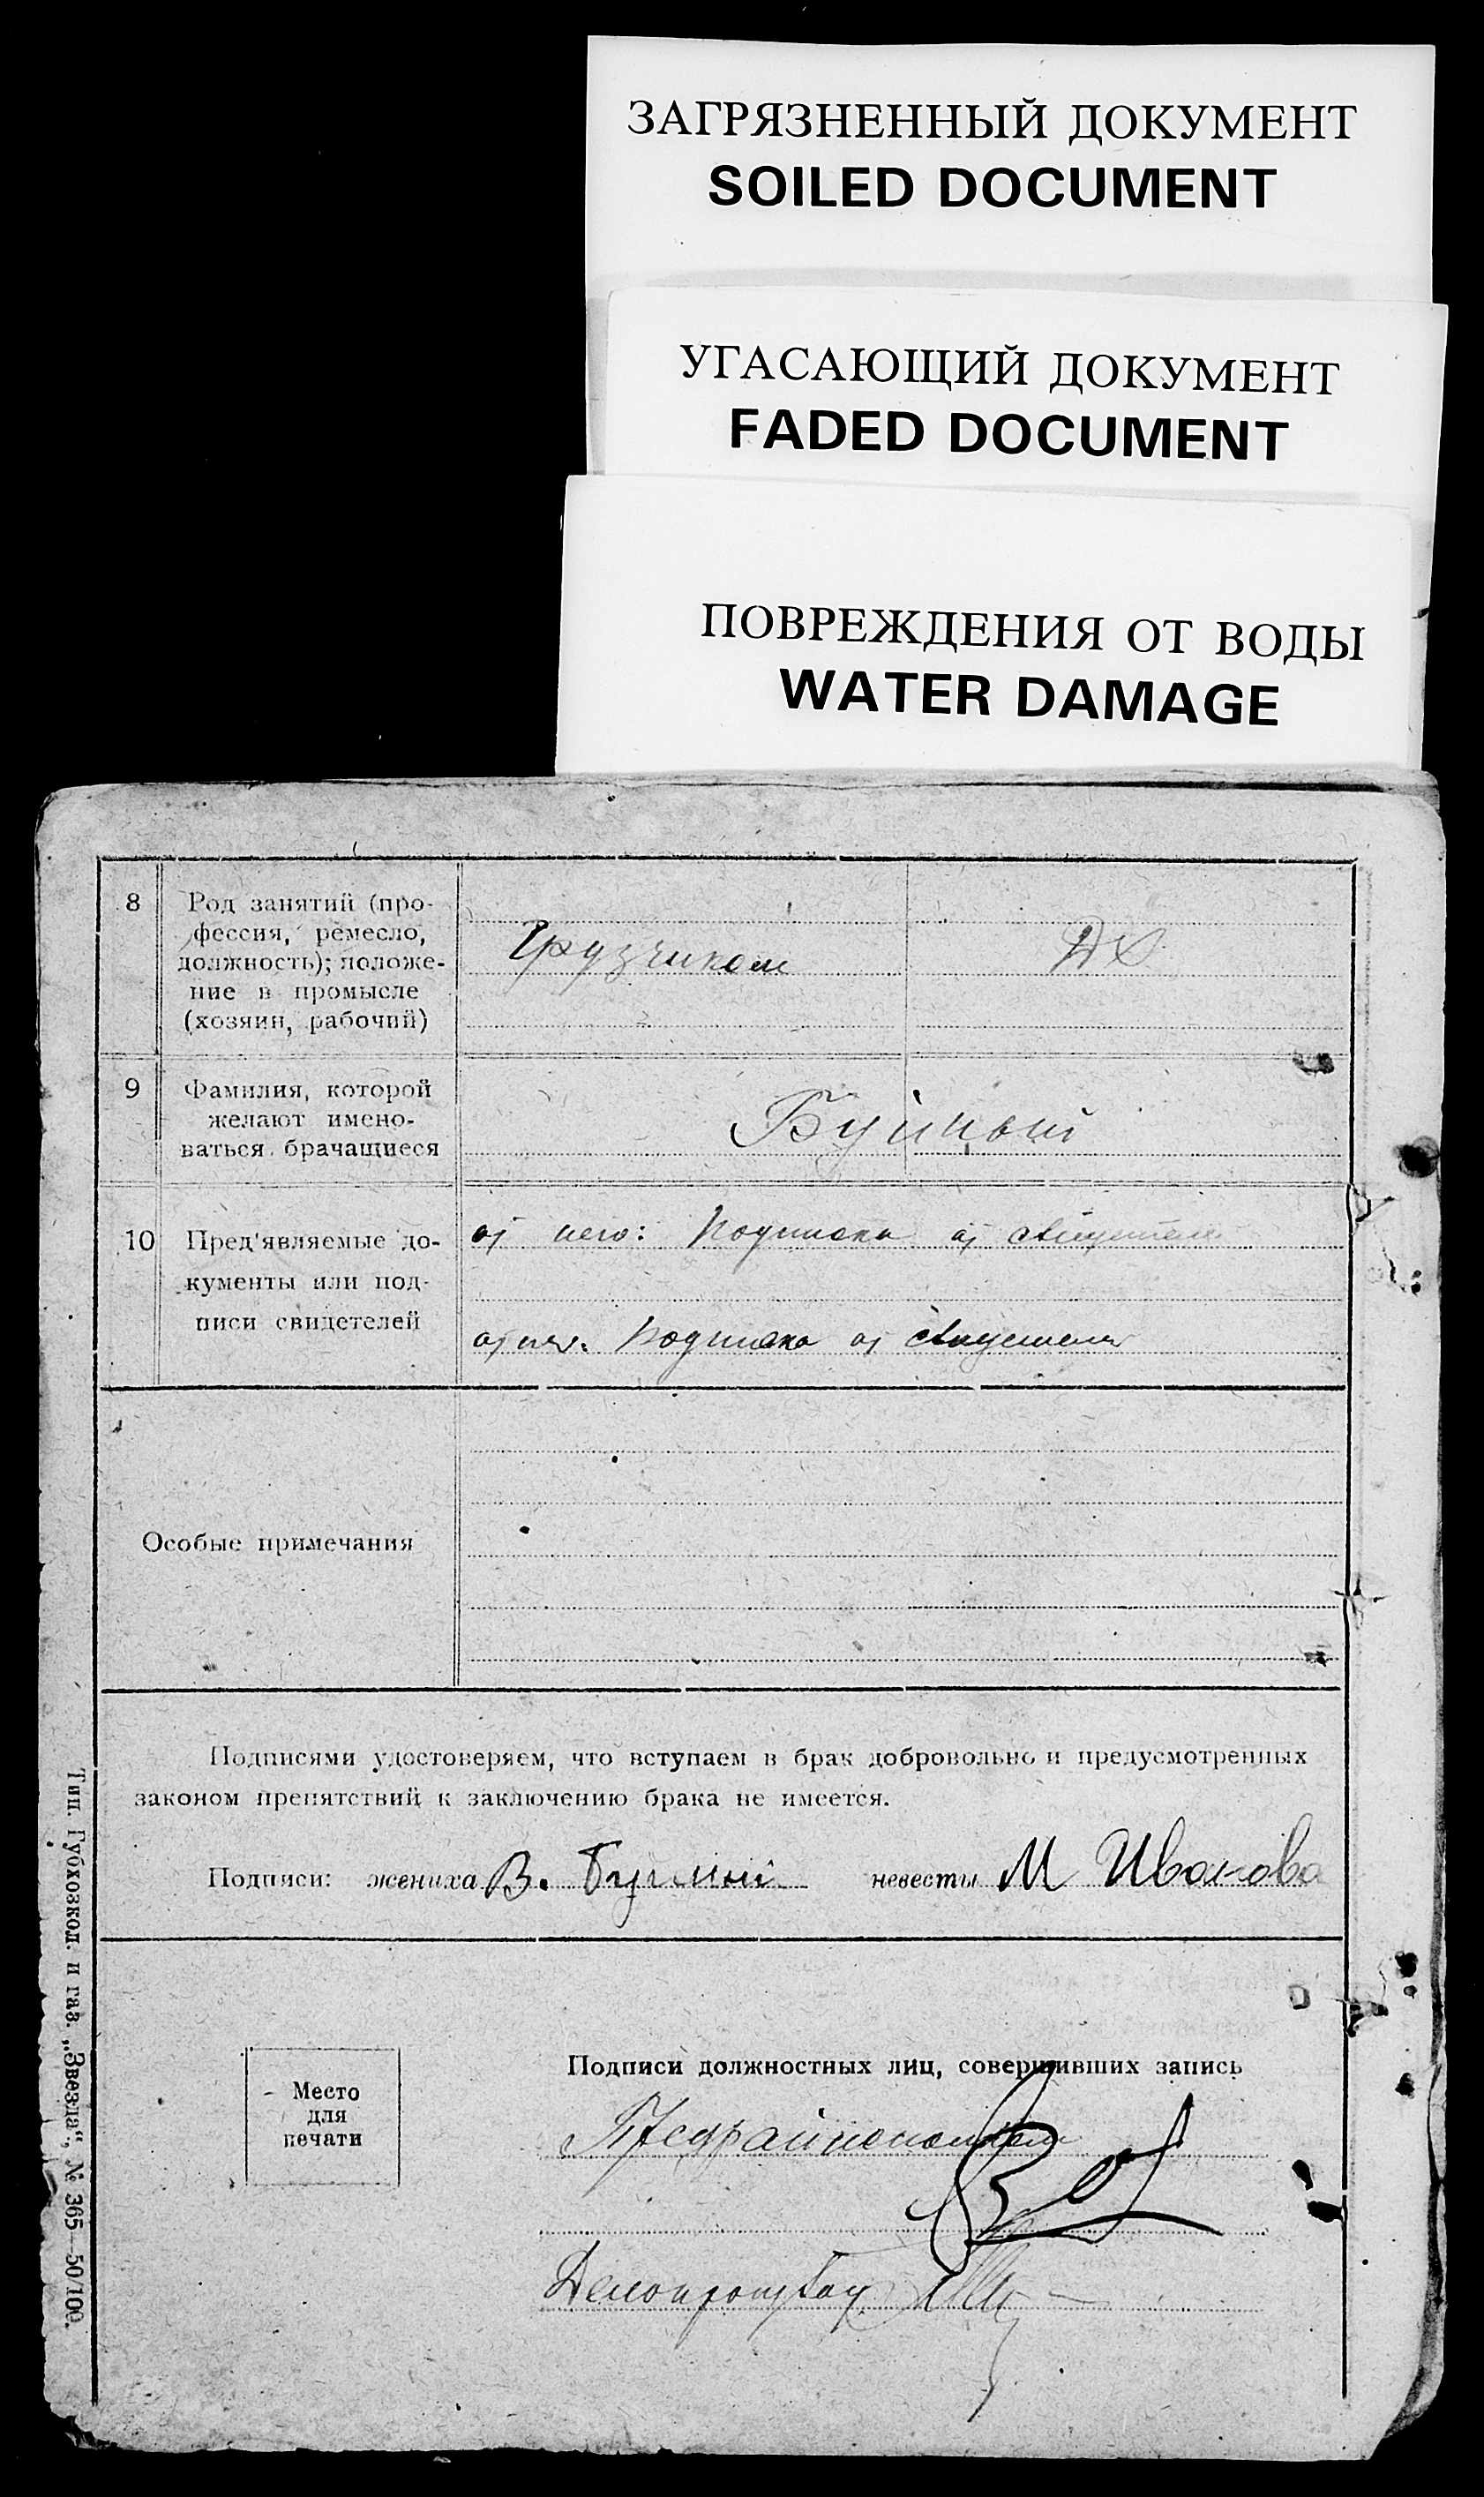 ЗАГРЯЗНЕННЫЙ ДОКУМЕНТ
SOILED DOCUMENT
УГАСАЮЩИЙ ДОКУМЕНТ
FADED DOCUMENT
ПОВРЕЖДЕНИЯ ОТ ВОДЫ
WATER DAMAGE
8 Род занятий (про-
фессия, ремесло,
должность); положе-
ние в промысле
(хозяин, рабочий)
Грузчиком
ДХ
9 Фамилия, которой
желают имено-
ваться брачащиеся
10 Пред'являемые до-
кументы или под-
писи свидетелей
от него: Подписка от
от нее: Подписка от
Особые примечания
Подписями удостоверяем, что вступаем в брак добровольно и предусмотренных
законом препятствий к заключению брака не имеется.
Подписи: жениха В. невесты М Иванова
Место
для
печати
Подписи должностных лиц, совершивших запись
Делопроизвод
Тип. Губхозкол. и газ. „Звезда“, № 365—50/100.